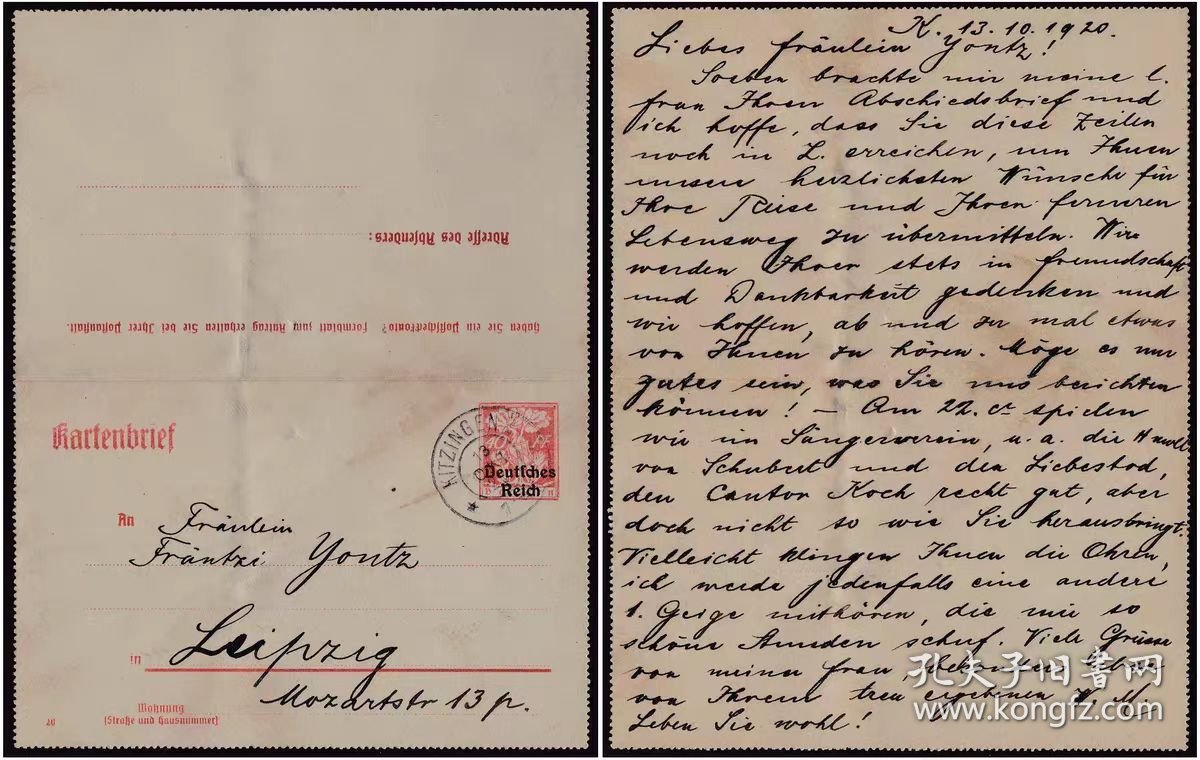 Adresse des Absenders:
Haben Sie ein Postscheckkonto? Formblatt zum Antrag erhalten Sie bei Ihrer Postanstalt.
Kartenbrief
KITZINGEN
Deutsches
Reich
An
Fräulein
Fräntzi Yontz
in Leipzig
Mozartstr 13 p.
Wohnung
(Straße und Hausnummer)
K. 13.10.1920.
Liebes Fräulein Yontz!
Soeben brachte mir meine l.
Frau Ihren Abschiedsbrief und
ich hoffe, dass Sie diese Zeilen
noch in L. erreichen, um Ihnen
unsere herzlichsten Wünsche für
Ihre Reise und Ihren ferneren
Lebensweg zu übermitteln. Wir
werden Ihrer stets in Freundschaft
und Dankbarkeit gedenken und
wir hoffen, ab und zu mal etwas
von Ihnen zu hören. Möge es nur
gutes sein, was Sie uns berichten
können! – Am 22. cr spielen
wir im Sängerverein, u. a. die
von Schubert und den Liebestod,
den Cantor Koch recht gut, aber
doch nicht so wie Sie herausbringt.
Vielleicht klingen Ihnen die Ohren,
ich werde jedenfalls eine andere
1. Geige mithören, die mir so
schöne Stunden schuf. Viele Grüsse
von meiner Frau,
von Ihrem treu ergebenen
Leben Sie wohl!
孔夫子旧书网
www.kongfz.com